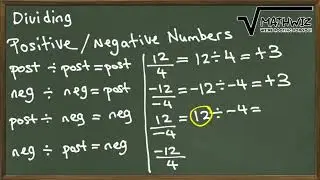 MATHWIZ
WE'RE ROOTING FOR YOU!
Dividing
Positive / Negative Numbers
post ÷ post = post
neg ÷ neg = post
post ÷ neg = neg
neg ÷ post = neg
12/4 = 12 ÷ 4 = +3
-12/-4 = -12 ÷ -4 = +3
12/-4 = 12 ÷ -4 =
-12/4